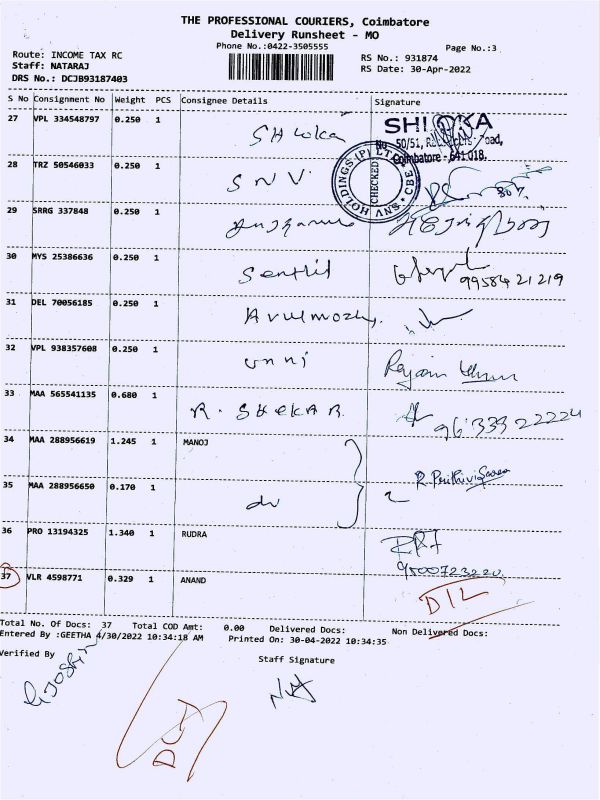 THE PROFESSIONAL COURIERS, Coimbatore
Delivery Runsheet - MO
Phone No.:0422-3505555
Page No.:3
Route: INCOME TAX RC
RS No.: 931874
Staff: NATARAJ
RS Date: 30-Apr-2022
DRS No.: DCJB93187403
S No Consignment No Weight PCS Consignee Details Signature
27 VPL 334548797 0.250 1 Shloka
SHLOKA
No 50/51, Road,
Coimbatore - 641 018.
28 TRZ 50546033 0.250 1 SNV
SNV HOLDINGS (P) LTD CBE
CHECKED
29 SRRG 337848 0.250 1
30 MYS 25386636 0.250 1 Senthil
99584 21219
31 DEL 70056185 0.250 1 Arulmozhi
32 VPL 938357608 0.250 1 unni
33 MAA 565541135 0.680 1 R. SHEKAR
34 MAA 288956619 1.245 1 MANOJ
35 MAA 288956650 0.170 1 do
36 PRO 13194325 1.340 1 RUDRA
37 VLR 4598771 0.329 1 ANAND
D/L
Total No. Of Docs: 37 Total COD Amt: 0.00 Delivered Docs: Non Delivered Docs:
Entered By :GEETHA 4/30/2022 10:34:18 AM Printed On: 30-04-2022 10:34:35
Verified By
Staff Signature